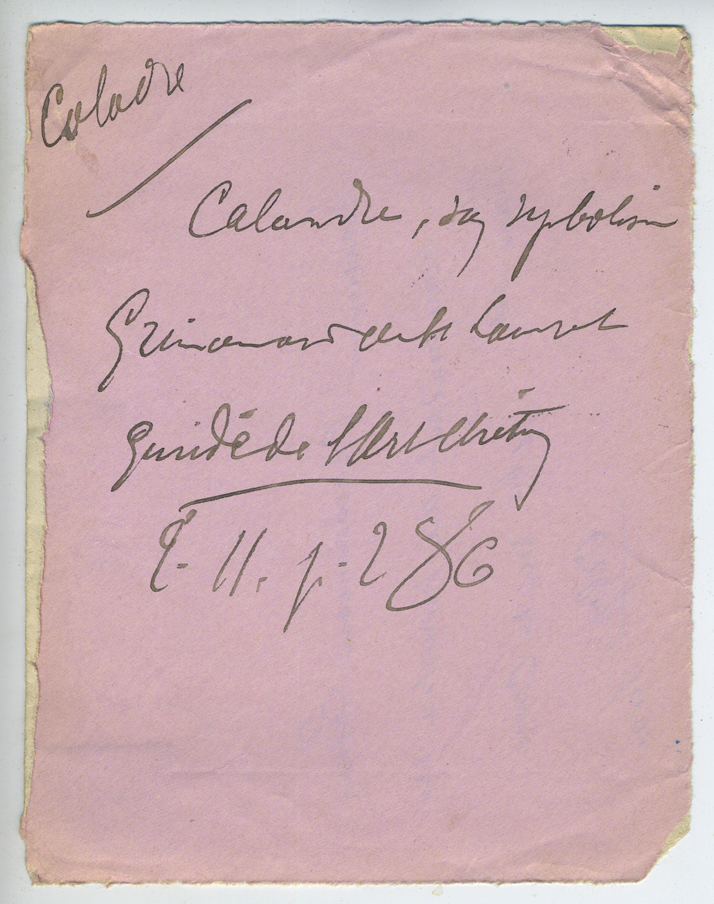 Caladre
Calandre, son symbolisme
Grimouard de St Laurent
Guide de l'Art chrétien
T. II. p. 286